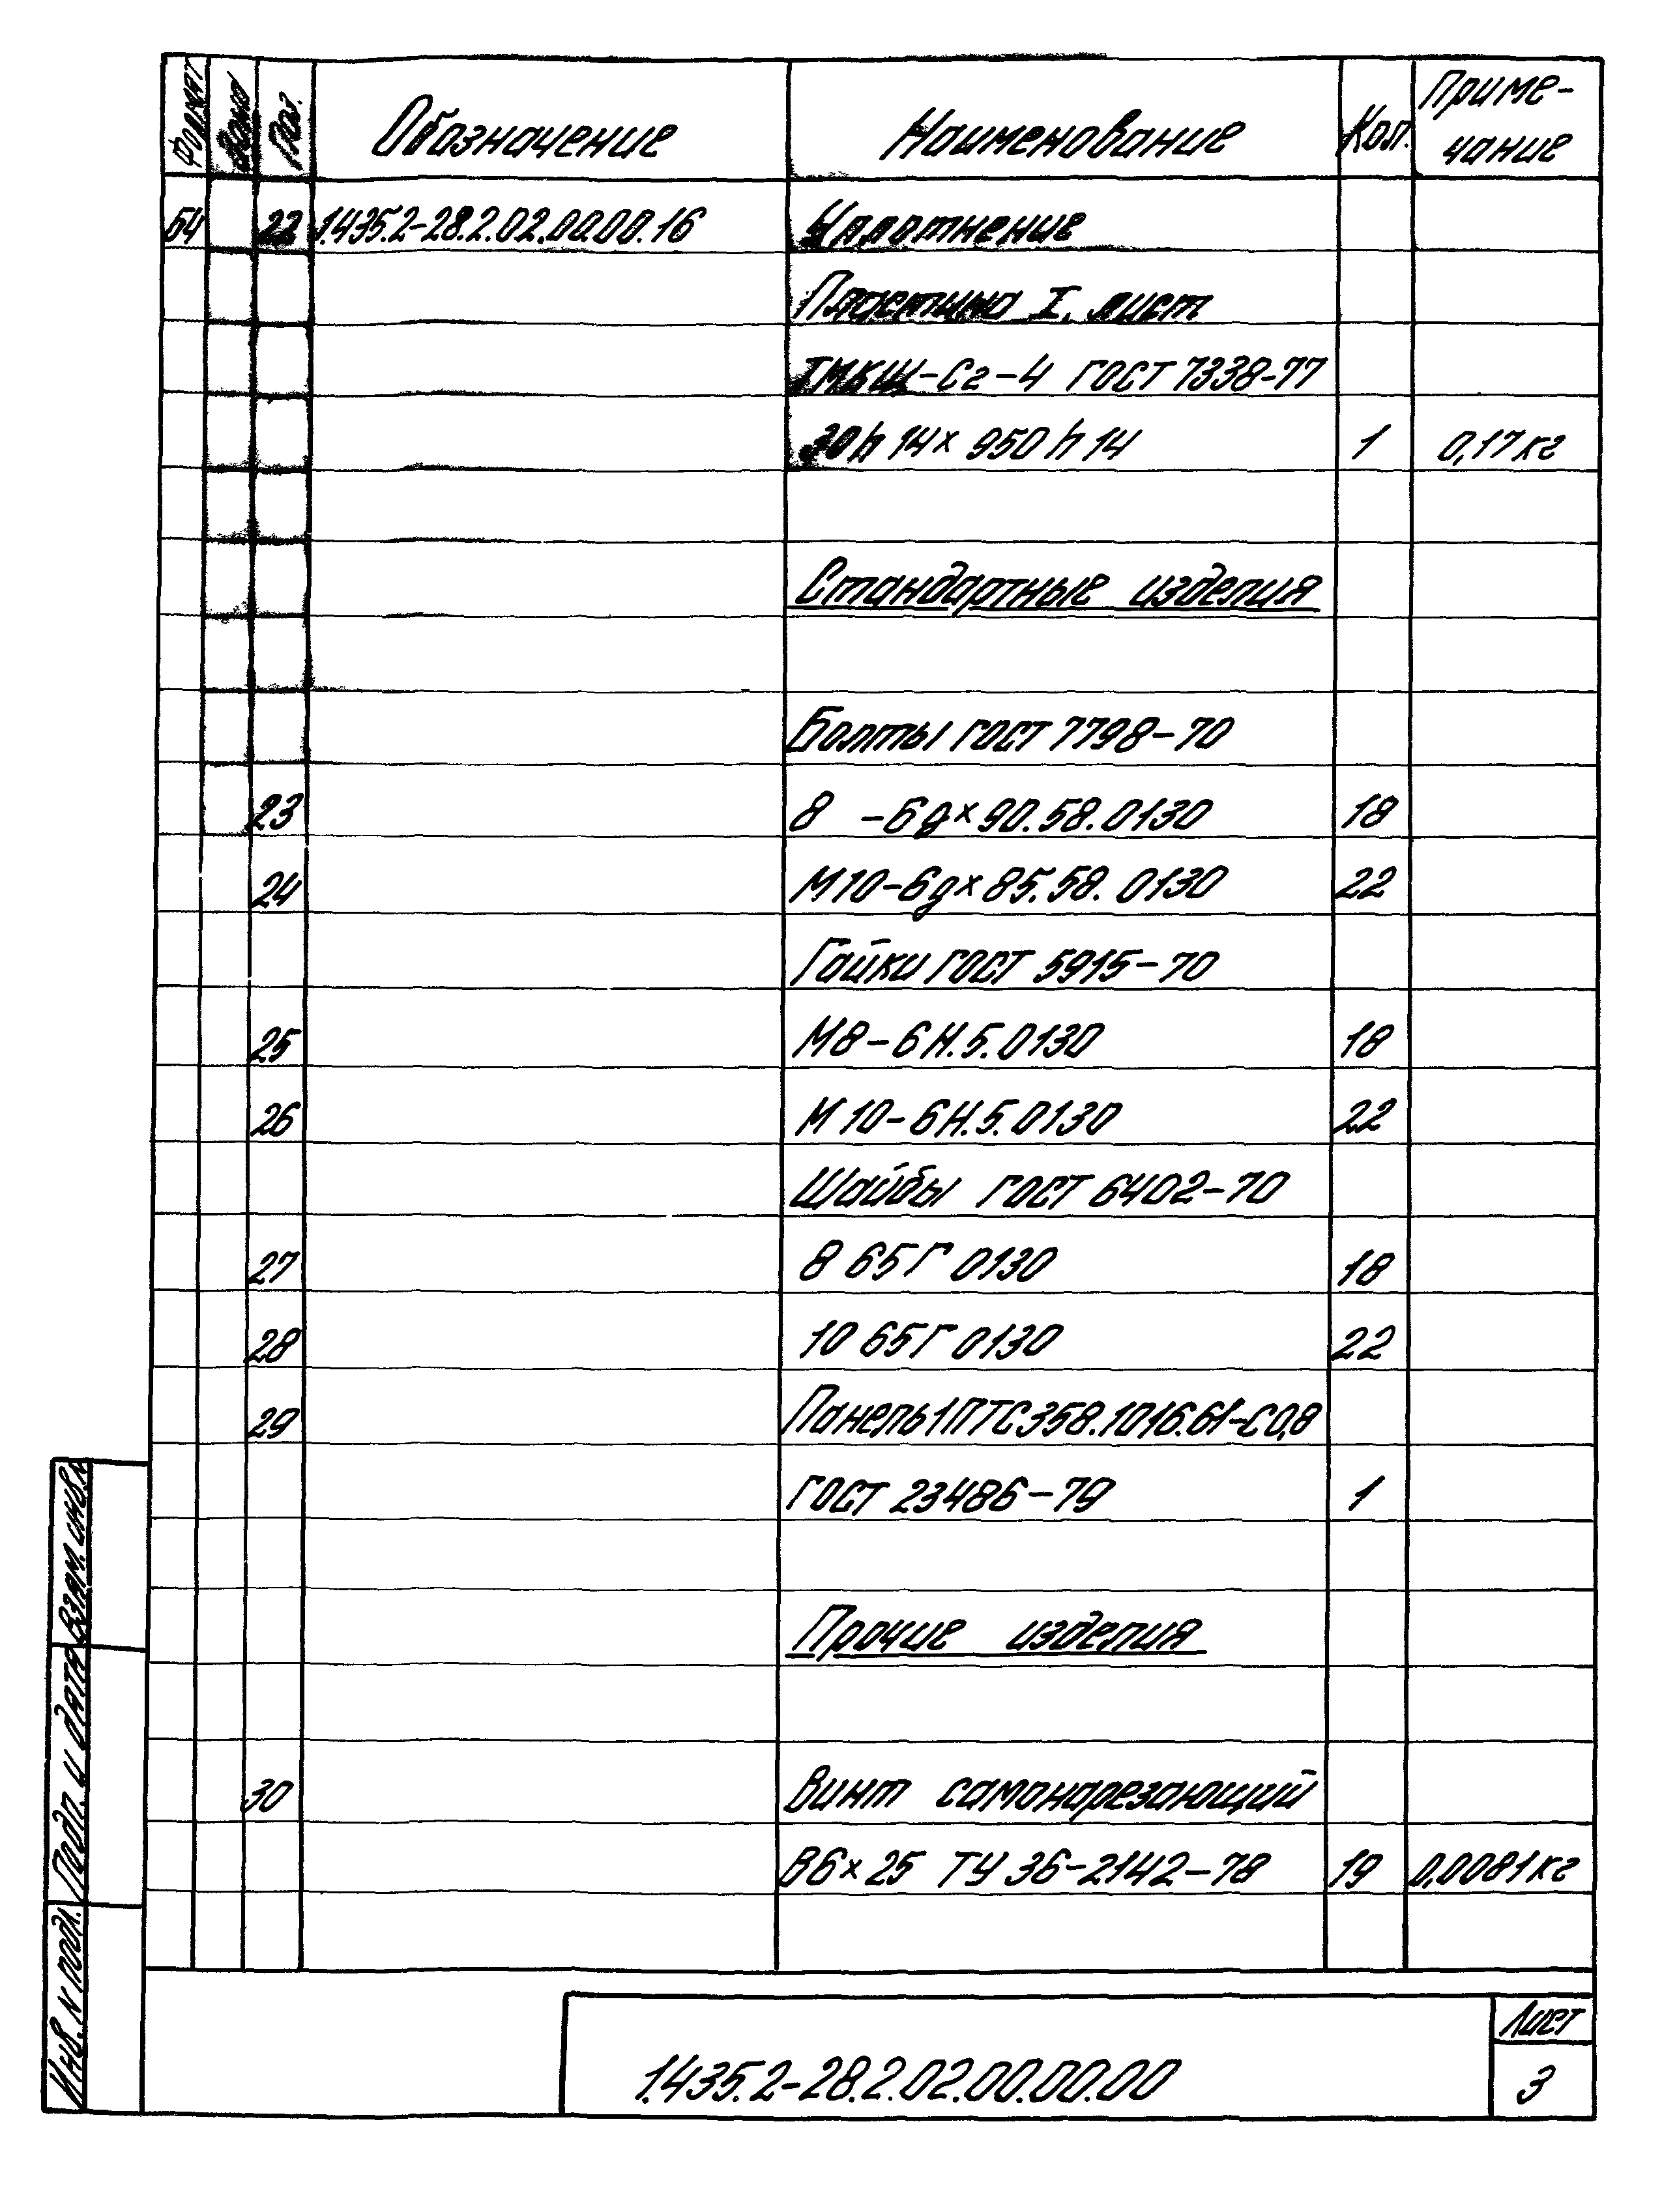 Формат Зона Поз. Обозначение Наименование Кол. Приме-
чание
б4 22 1.435.2-28.2.02.00.00.16 Уплотнение
Пластина I, лист
ТМКЩ-С2-4 ГОСТ 7338-77
30h14×950h14 1 0,17кг
Стандартные изделия
Болты ГОСТ 7798-70
23 8 -6g×90.58.0130 18
24 М10-6g×85.58.0130 22
Гайки ГОСТ 5915-70
25 М8-6Н.5.0130 18
26 М10-6Н.5.0130 22
Шайбы ГОСТ 6402-70
27 8 65Г 0130 18
28 10 65Г 0130 22
29 Панель 1ПТС358.1016.61-С0,8
ГОСТ 23486-79 1
Прочие изделия
30 Винт самонарезающий
В6×25 ТУ 36-2142-78 19 0,0081кг
Взам. инв. N
Подп. и дата
Инв. N подл.
1.435.2-28.2.02.00.00.00
Лист
3